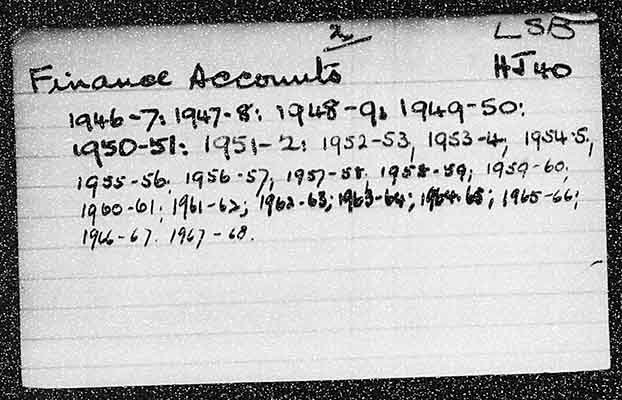 2
LSB
Finance Accounts HJ40
1946-7; 1947-8; 1948-9; 1949-50;
1950-51; 1951-2; 1952-53, 1953-4, 1954-5,
1955-56; 1956-57; 1957-58; 1958-59; 1959-60;
1960-61; 1961-62; 1962-63; 1963-64; 1964-65; 1965-66;
1966-67. 1967-68.